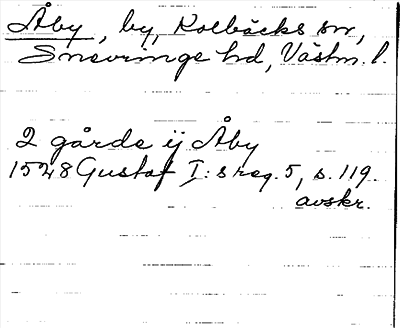 Åby, by, Kolbäcks sn,
Snevringe hd, Västm. l.
2 gårde ij Åby
1528 Gustaf I:s reg. 5, s. 119.
avskr.